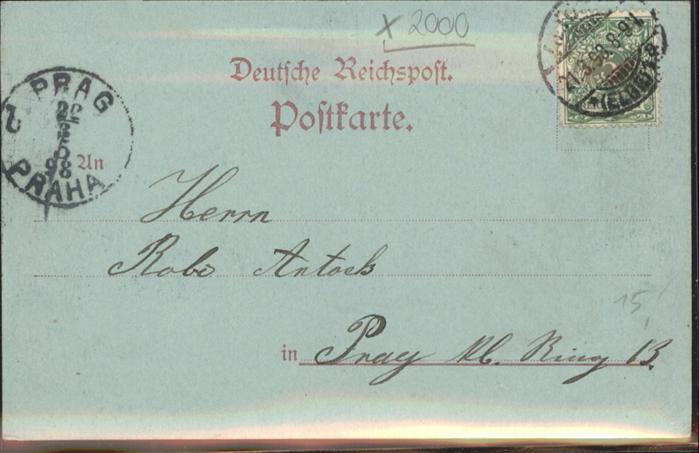 x 2000
Deutsche Reichspost.
Postkarte.
PRAG
PRAHA
An
Herrn
Robe Antoch
15,
in Prag kl. Ring 13.